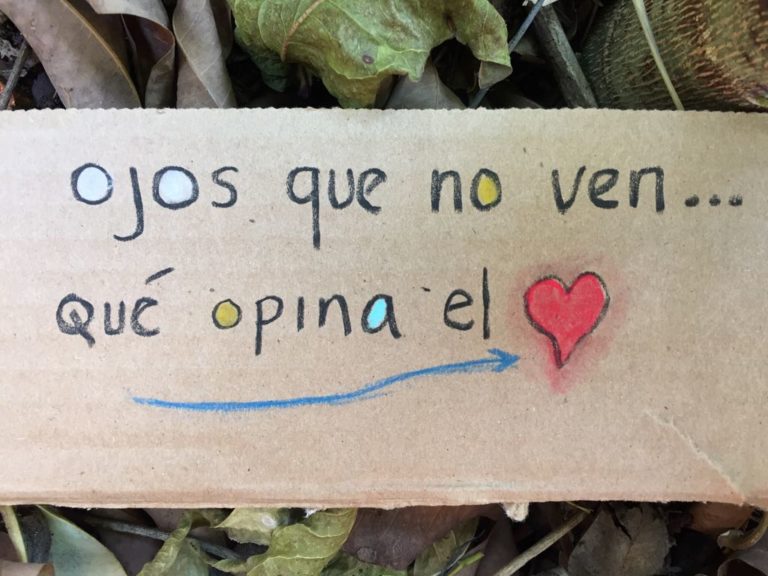 ojos que no ven...
qué opina el ❤